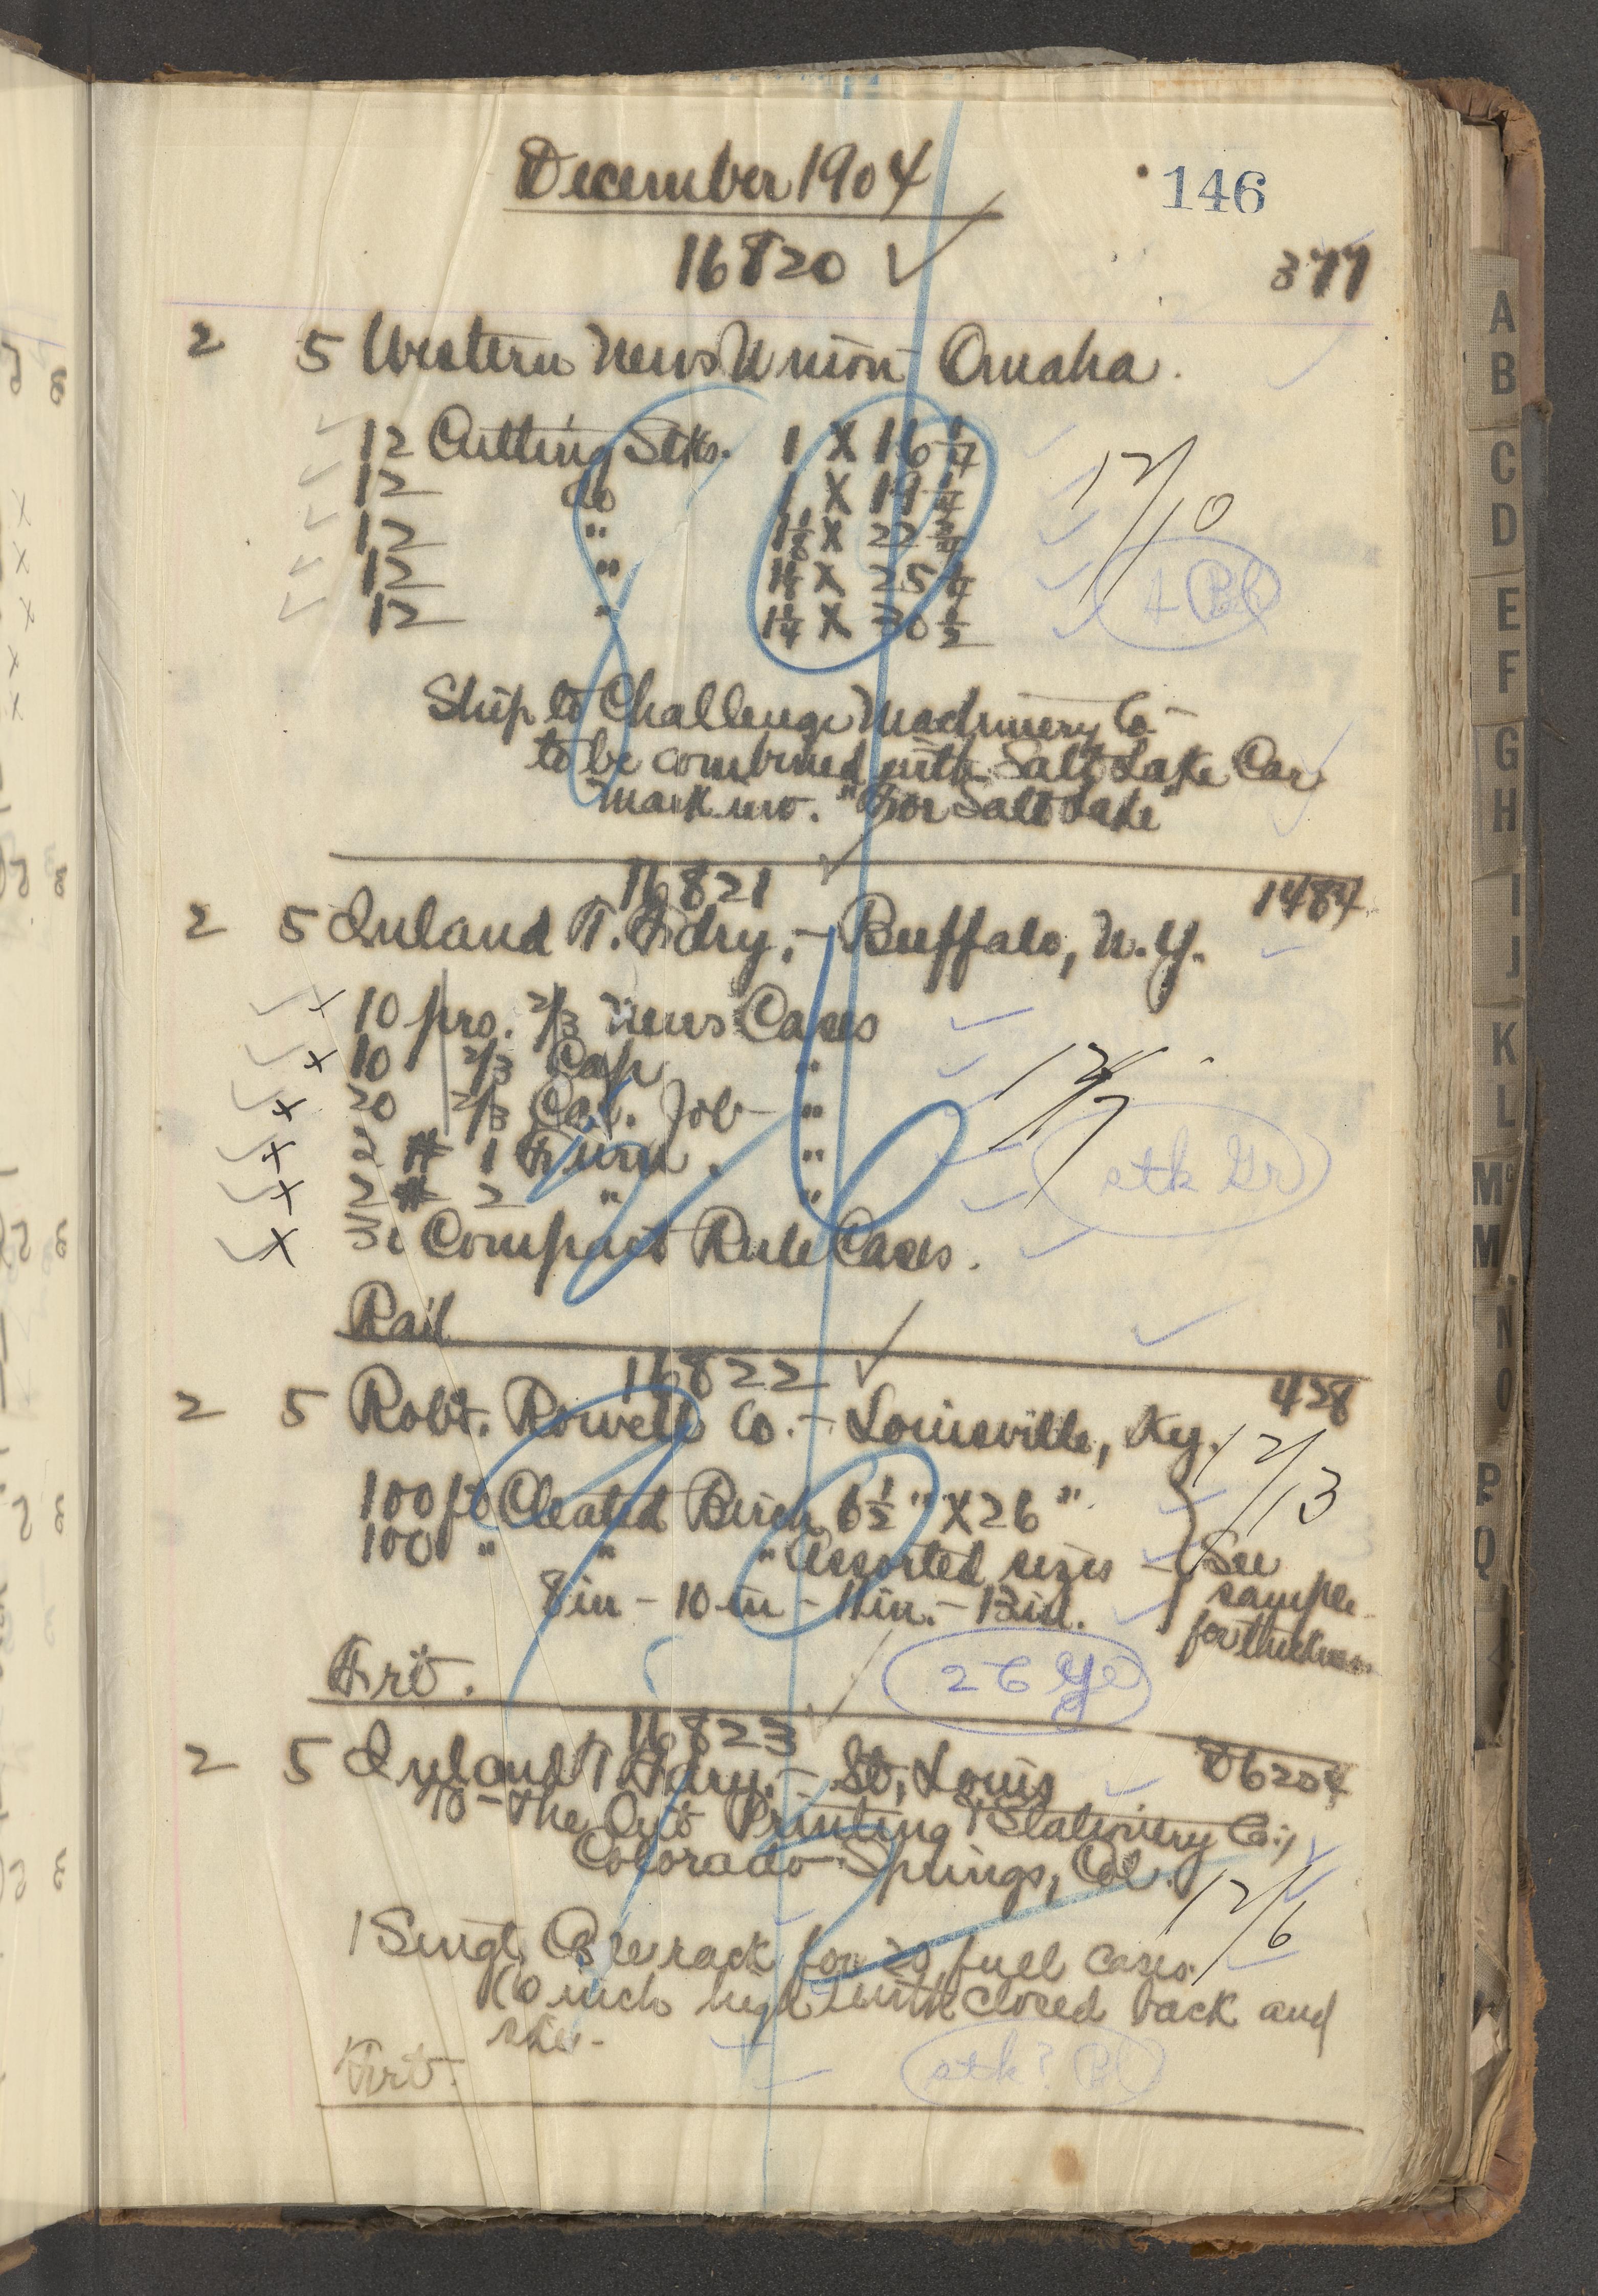 December 1904
146
16820 ✓
377
2 5 Western News Union Omaha.
12 Cutting Stks. 1 X 16 1/4
12 do 1 X 19 1/4
12 " 1 1/8 X 22 3/4
12 " X 25 1/4
12 " 1 1/4 X 30 1/2
12/10
Ship to Challenge Machinery Co-
to be combined with Salt Lake Car
Mark inv. "For Salt Lake"
16821
1484
2 5 Inland T. Fdry. - Buffalo, N.Y.
✓ x 10 prs. 2/3 News Cases
✓ x 10 2/3 Cap "
✓ x 20 2/3 Cal. Job - "
✓ x 2 # 1 "
✓ x 2 # 2 " "
✓ x Compact Rule Cases.
12/7
stk Gr
Rail
16822 ✓
428
2 5 Robt. Rowell Co. - Louisville, Ky.
12/13
100 ft Cleated Birch 6 1/2" X 26"
100 " " " Assorted sizes - See
8 in - 10 in - 11 in. - 13 in. sample
for thickness
Frt.
16823
06204
2 5 Inland T. Fdry. - St. Louis
To - The Out Printing & Stationery Co.,
Colorado Springs, Col.
12/6
1 Singl. Case rack for 20 full cases.
inch high with closed back and
Frt.
stk?
A
B
C
D
E
F
G
H
I
J
K
L
Mc
M
N
O
P
Q